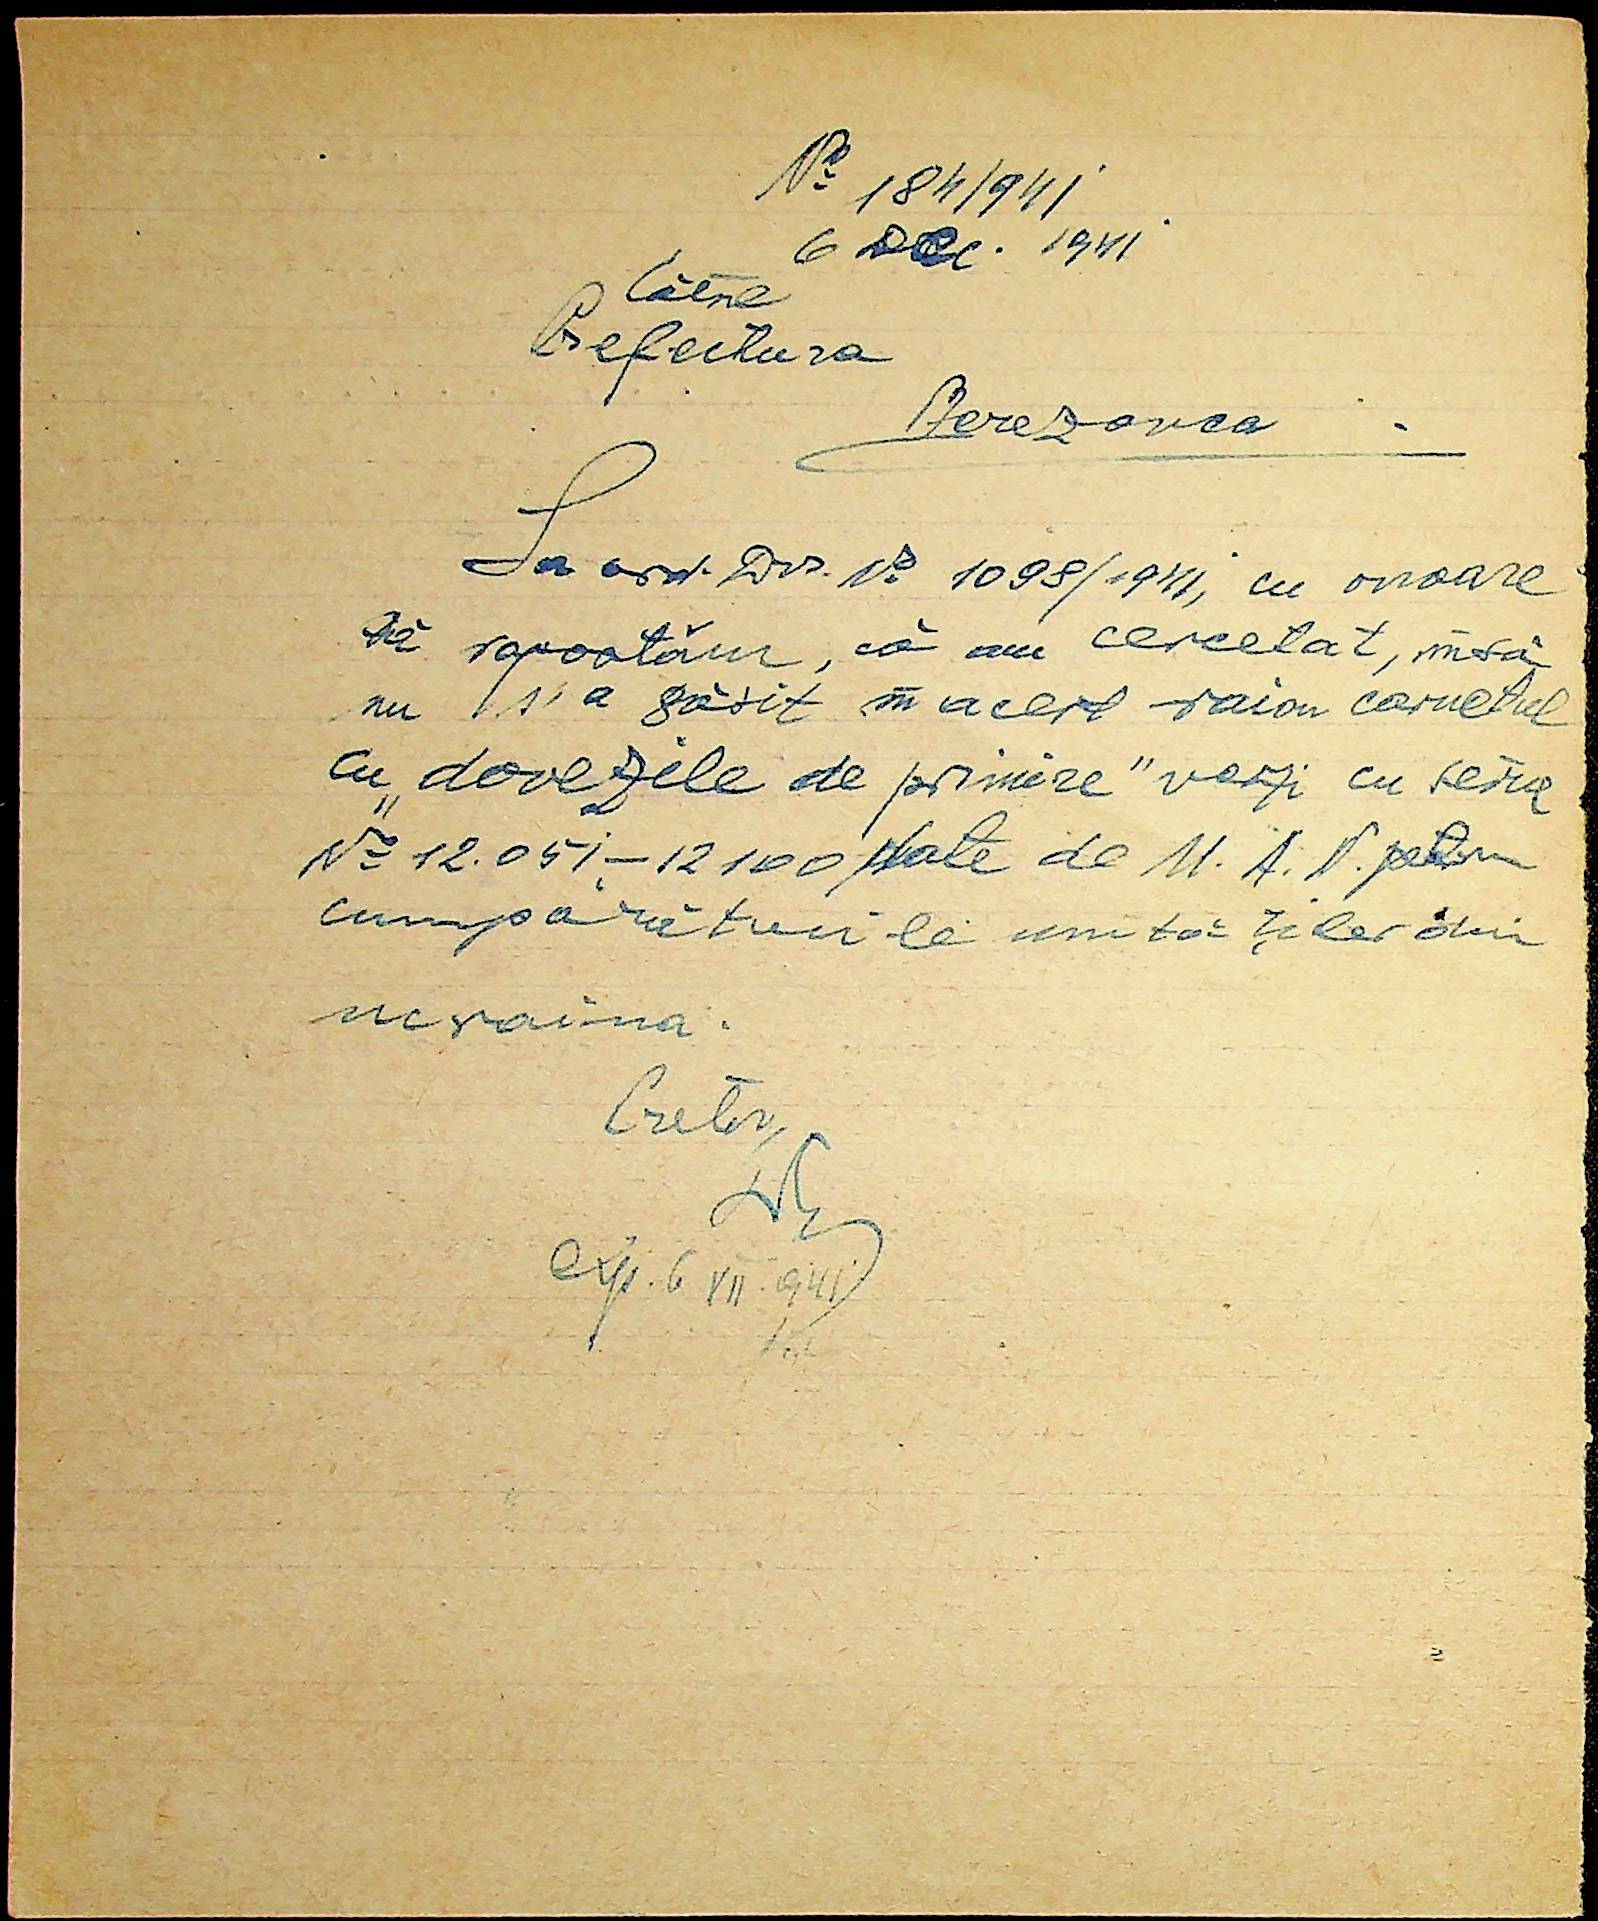 No 184/941
6 Dec. 1941
Către
Prefectura
Berezovca
La ord. Dvs. No 1098/1941, cu onoare
vă raportăm, că am cercetat, însă
nu s'a găsit în acest raion carnetul
cu „dovezile de primire" verzi cu seria
No 12.051-12100 date de M. A. N. pentru
cumpărăturile unităților din
ucraina.
Pretor,
exp. 6 XII. 941